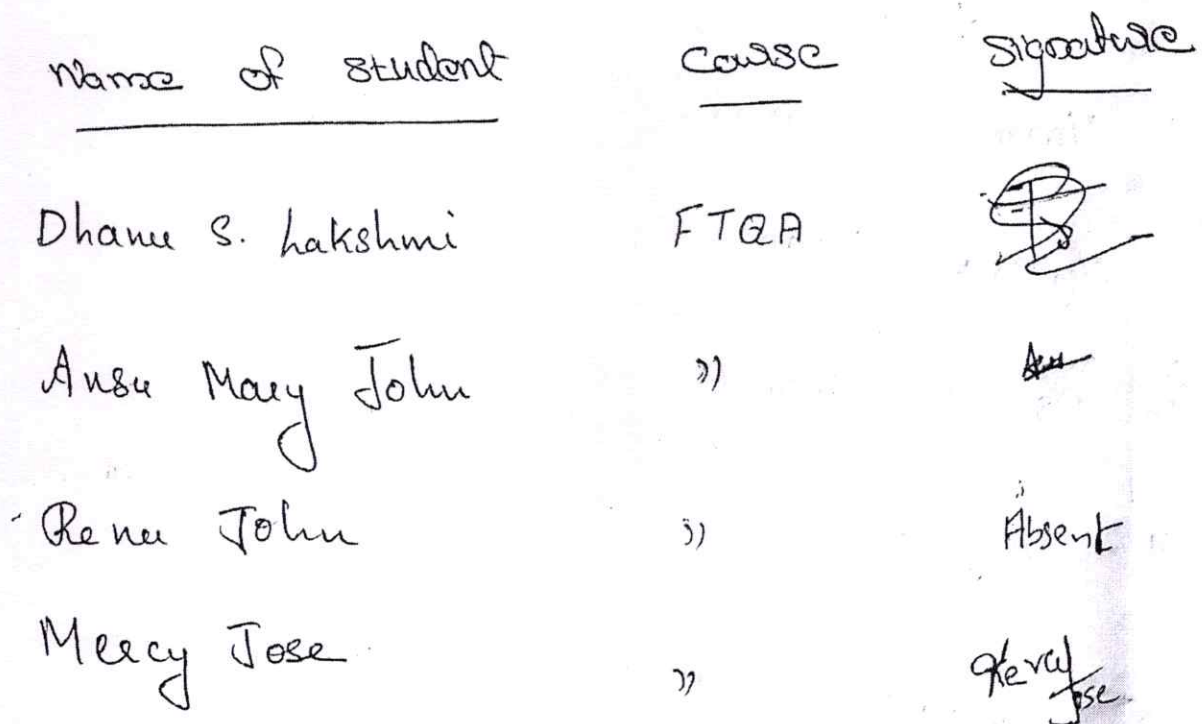 Name of student Course Signature
Dhanu S. Lakshmi FTQA
Ansu Mary John ))
Renu John )) Absent
Mercy Jose )) Mercy Jose